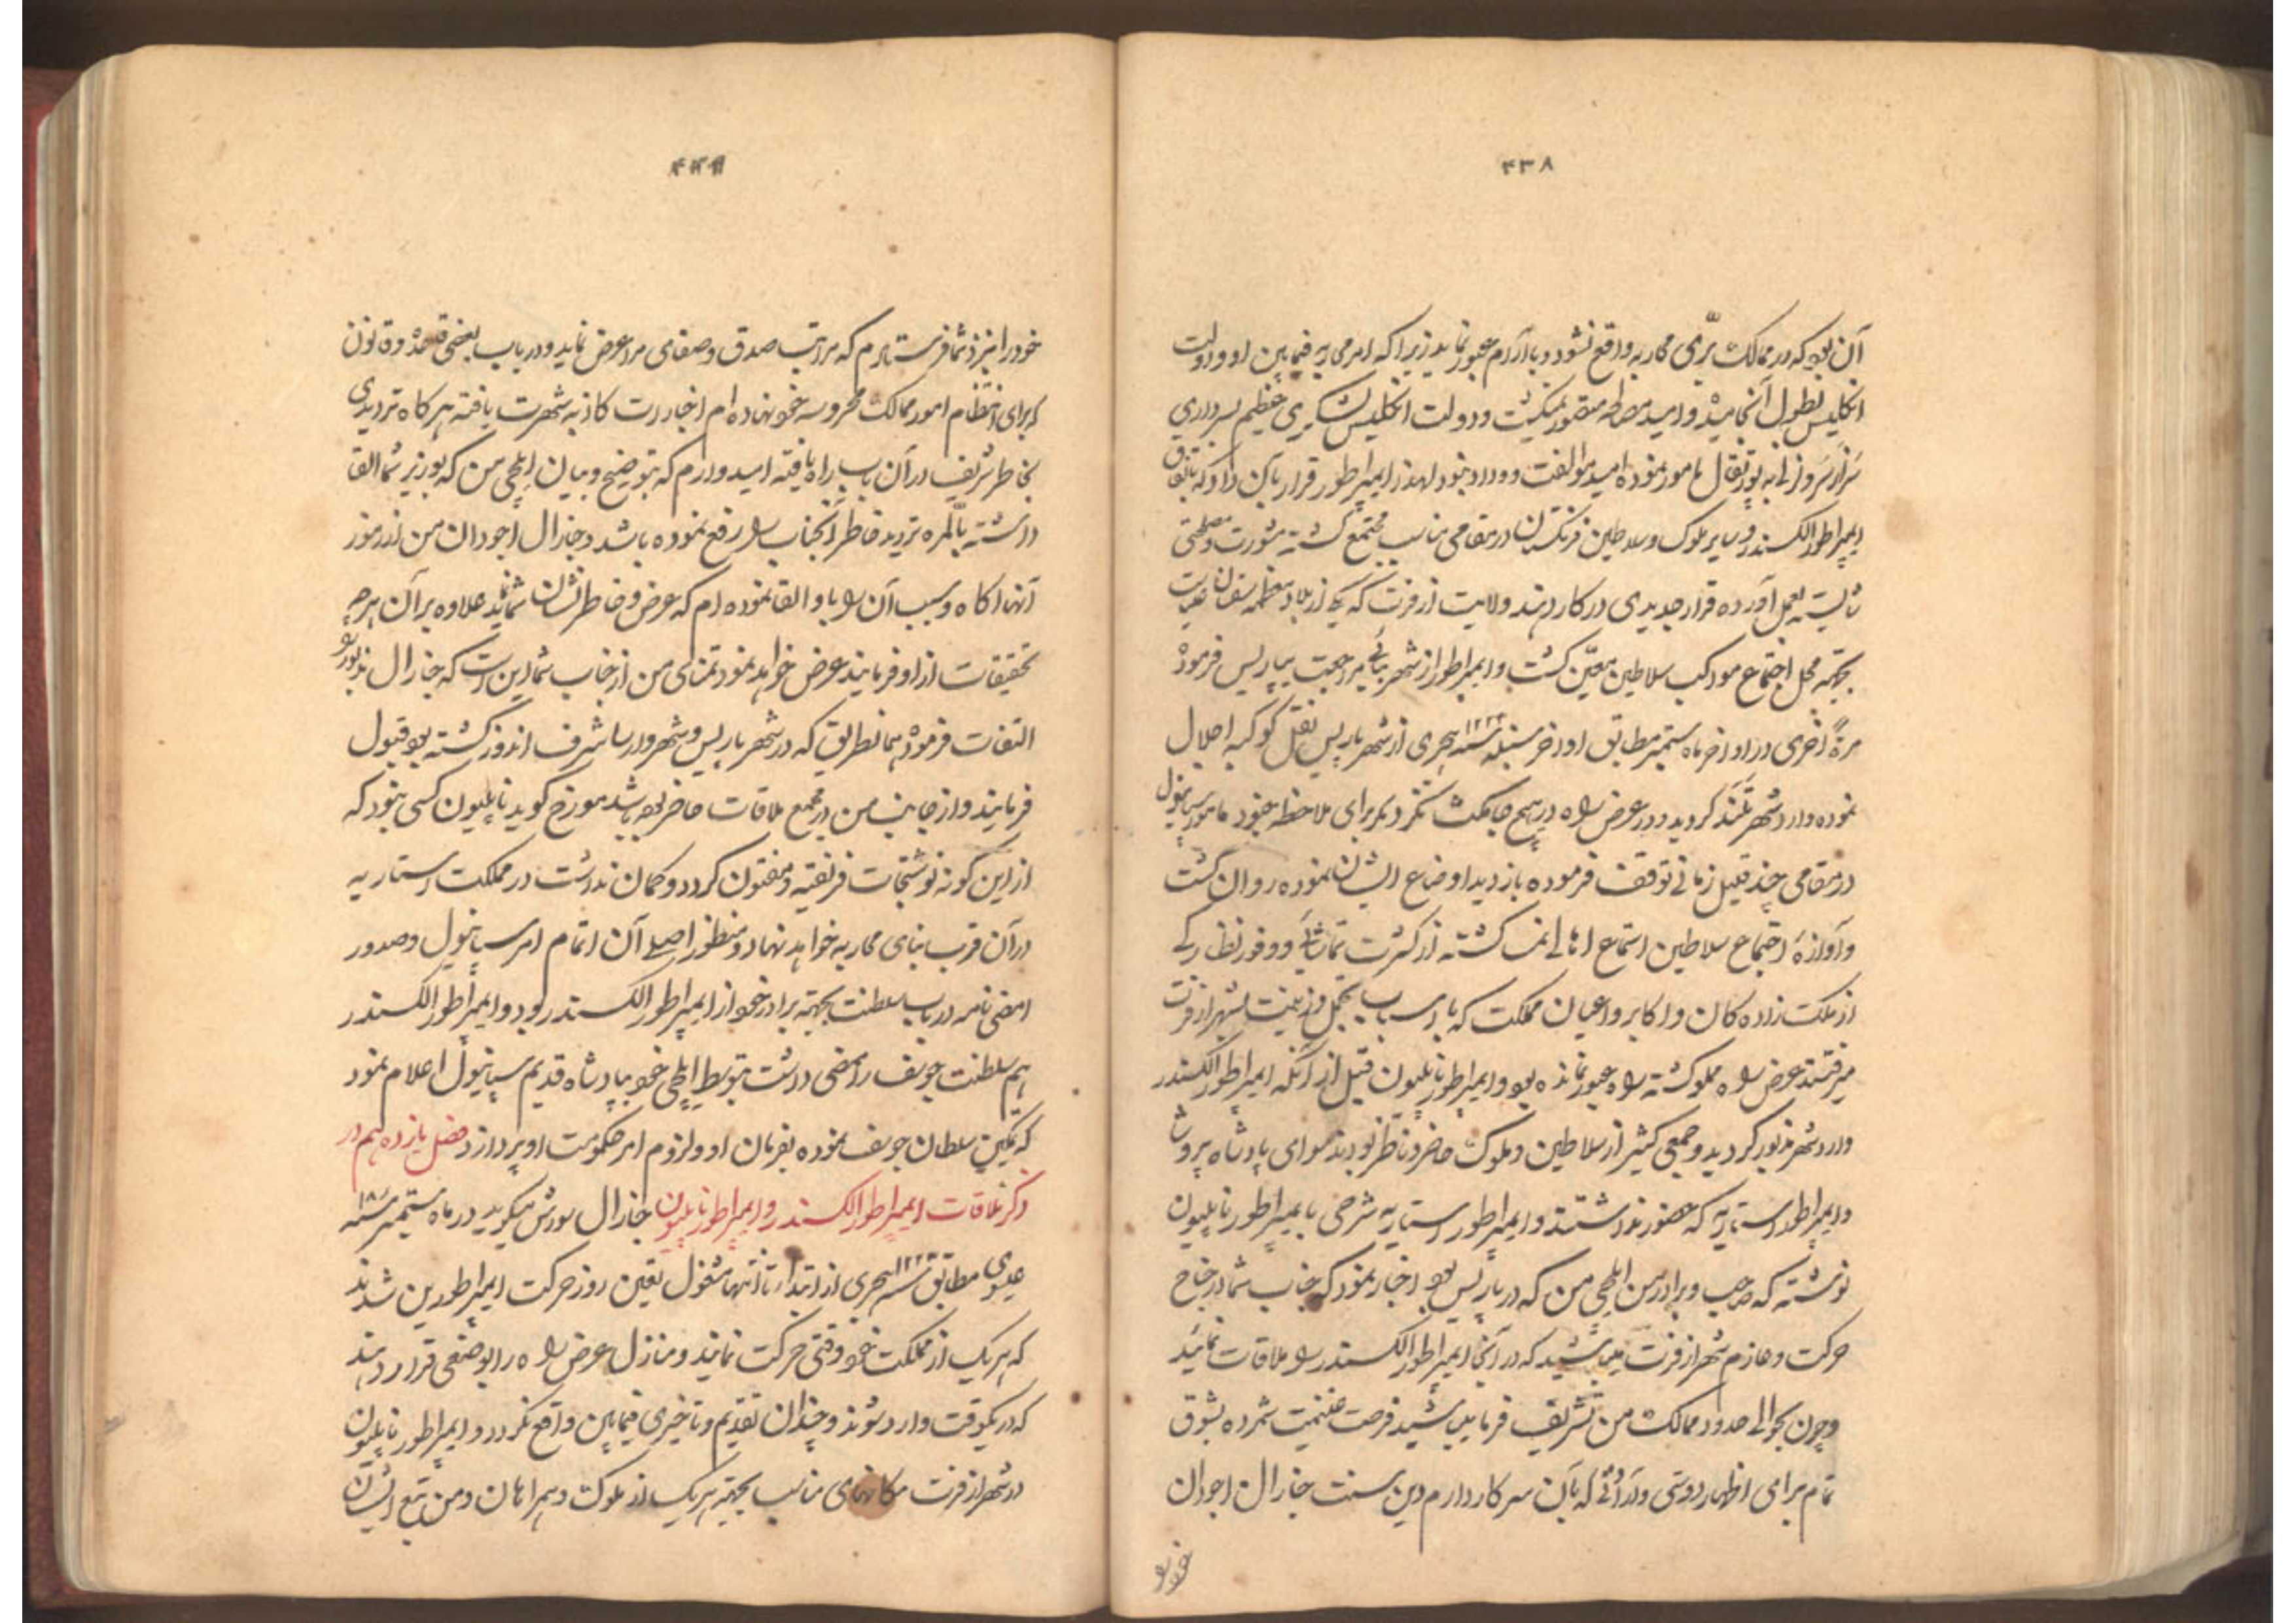 ۴۳۸
آن بود که در ممالک برّی محاربه واقع نشود و باآرام عبور نماید زیرا که امر محاربه فیمابین او و دولت
انکلیس بطول انجامیده و امید مصالحه متصور نمیکشت و دولت انکلیس لشکری عظیم بسرداری
به پورتقال مامور نموده امید موالفت و وداد نبود لهذا ایمپراطور قرار بآن داد که باتفاق
ایمپراطور الکسندر و سایر ملوک و سلاطین فرنکستان در مقامی مناسب مجتمع کشته مشورت و مصلحتی
شایسته بعمل آورده قرار جدیدی در کار دهند ولایت ارفرت که یکی از بلاد معظمه
بجهة محل اجتماع موکب سلاطین معیّن کشت و ایمپراطور از شهر مراجعت بپاریس فرموده
مرةً اخری در اواخر ماه ستمبر مطابق اواخر سنبله سنه ۱۲۲۳ هجری از شهر پاریس نقل کوکبه اجلال
نموده وارد شهر کردید و در عرض راه در هیچ جا مکث نکرد مکر برای ملاحظه جنود مامور سپانیول
در مقامی چند قلیل زمانی توقف فرموده بازدید اوضاع ایشان نموده روان کشت
و آوازهٔ اجتماع سلاطین استماع اهالی کشته از کثرت تماشائی و وفور نظارکی
از ملک زاده کان و اکابر و اعیان مملکت که با اسباب تجمل و زینت بشهر ارفرت
میرفتند عرض راه مملو کشته راه عبور نمانده بود و ایمپراطور ناپلیون قبل از آنکه ایمپراطور الکسندر
وارد شهر مذبور کردید و جمعی کثیر از سلاطین و ملوک حاضر و ناظر بودند سوای پادشاه پروشا
و ایمپراطور استاریه که حضور نداشتند و ایمپراطور استاریه شرحی بایمپراطور ناپلیون
نوشته که صاحب و برادر من ایلچی من که در پاریس بود اخبار نمود که جناب شما در جناح
حرکت و عازم شهر ارفرت میباشید که در آنجا ایمپراطور الکسندر را ملاقات نمائید
و چون بحوالی حدود ممالک من تشریف فرما میباشید فرصت غنیمت شمرده بشوق
تمام برای اظهار دوستی که بآن سرکار دارم جنارال اجودان
خود را
۴۳۹
خود را بنزد شما فرستادم که مراتب صدق و صفای مرا عرض نماید و در باب بعضی قاعده و قانون
که برای انتظام امور ممالک محروسه خود نهاده ام اخبارات کاذبه شهرت یافته هر کاه تردیدی
بخاطر شریف در آن باب راه یافته امیدوارم که بتوضیح و بیان ایلچی من که بوزیر شما القا
داشته بالمره تردید خاطر آنجناب را رفع نموده باشد و جنارال اجودان من از رموز
آنها اکاه و سبب آن را باو القا نموده ام که عرض و خاطرنشان شما نماید علاوه بر آن هرچه
تحقیقات از او فرمایند عرض خواهد نمود تمنای من از جناب شما این است که جنارال مذبور را
التفات فرموده بهمانطریق که در شهر پاریس و شهر ورسا شرف اندوز کشته بود قبول
فرمایند و از جانب من در مجمع ملاقات حاضر بوده باشد مورخ کوید ناپلیون کسی نبود که
از این کونه نوشتجات فریفته و مفتون کردد و کمان نداشت در مملکت استاریه
در آن قرب بنای محاربه خواهد نهاد و منظور اصلی آن اتمام امر سپانیول و صدور
امضی نامه در باب سلطنت بجهة برادر خود از ایمپراطور الکسندر بود و ایمپراطور الکسندر
هم سلطنت جوسف را ممضی داشت بتوسط ایلچی خود بپادشاه قدیم سپانیول اعلام نمود
که تمکین سلطان جوسف نموده بفرمان او و لزوم امر حکومت او پردازد فصل یازدهم در
ذکر ملاقات ایمپراطور الکسندر و ایمپراطور ناپلیون جنارال میکوید در ماه ستمبر سنه ۱۸۰۸
عیسوی مطابق سنه ۱۲۲۳ هجری از ابتدا تا انتها مشغول تعین روز حرکت ایمپراطورین شدند
که هریک از مملکت خود وقتی حرکت نمایند و منازل عرض راه را بوضعی قرار دهند
که در یکوقت وارد شوند و چندان تقدیم و تاخیری فیمابین واقع نکردد و ایمپراطور ناپلیون
در شهر ارفرت مکانهای مناسب بجهة هریک از ملوک و همراهان و من تبع ایشان